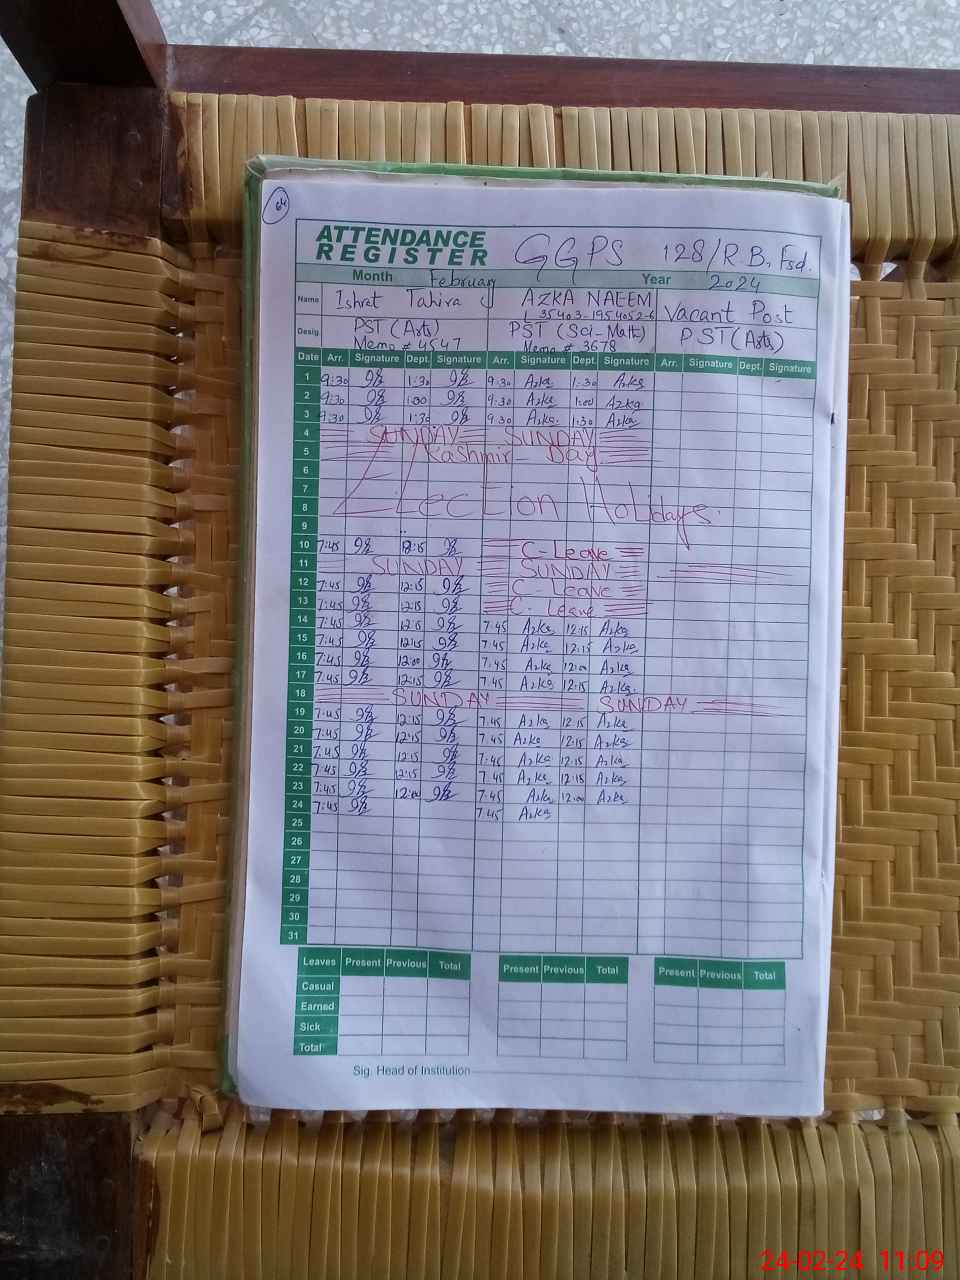 64
ATTENDANCE
REGISTER
GGPS 128/R.B, Fsd.
Month February Year 2024
Name Ishrat Tahira AZKA NAEEM Vacant Post
Desig. PST (Arts) PST (Sci-Math) PST (Arts)
Memo # 4547 Memo # 3678
Date Arr. Signature Dept. Signature Arr. Signature Dept. Signature Arr. Signature Dept. Signature
1 9:30 1:30 9:30 Azka 1:30 Azka
2 9:30 1:00 9:30 Azka 1:00 Azka
3 9:30 1:30 9:30 Azka 1:30 Azka
4 SUNDAY SUNDAY
5 Kashmir Day
6
7
8 Election Holidays.
9
10 7:45 12:15 C-Leave
11 SUNDAY SUNDAY
12 7:45 12:15 C-Leave
13 7:45 12:15 C-Leave
14 7:45 12:15 7:45 Azka 12:15 Azka
15 7:45 12:15 7:45 Azka 12:15 Azka
16 7:45 12:00 7:45 Azka 12:00 Azka
17 7:45 12:15 7:45 Azka 12:15 Azka
18 SUNDAY SUNDAY
19 7:45 12:15 7:45 Azka 12:15 Azka
20 7:45 12:15 7:45 Azka 12:15 Azka
21 7:45 12:15 7:45 Azka 12:15 Azka
22 7:45 12:15 7:45 Azka 12:15 Azka
23 7:45 12:00 7:45 Azka 12:00 Azka
24 7:45 7:45 Azka
25
26
27
28
29
30
31
Leaves Present Previous Total Present Previous Total Present Previous Total
Casual
Earned
Sick
Total
Sig. Head of Institution
24-02-24 11:09